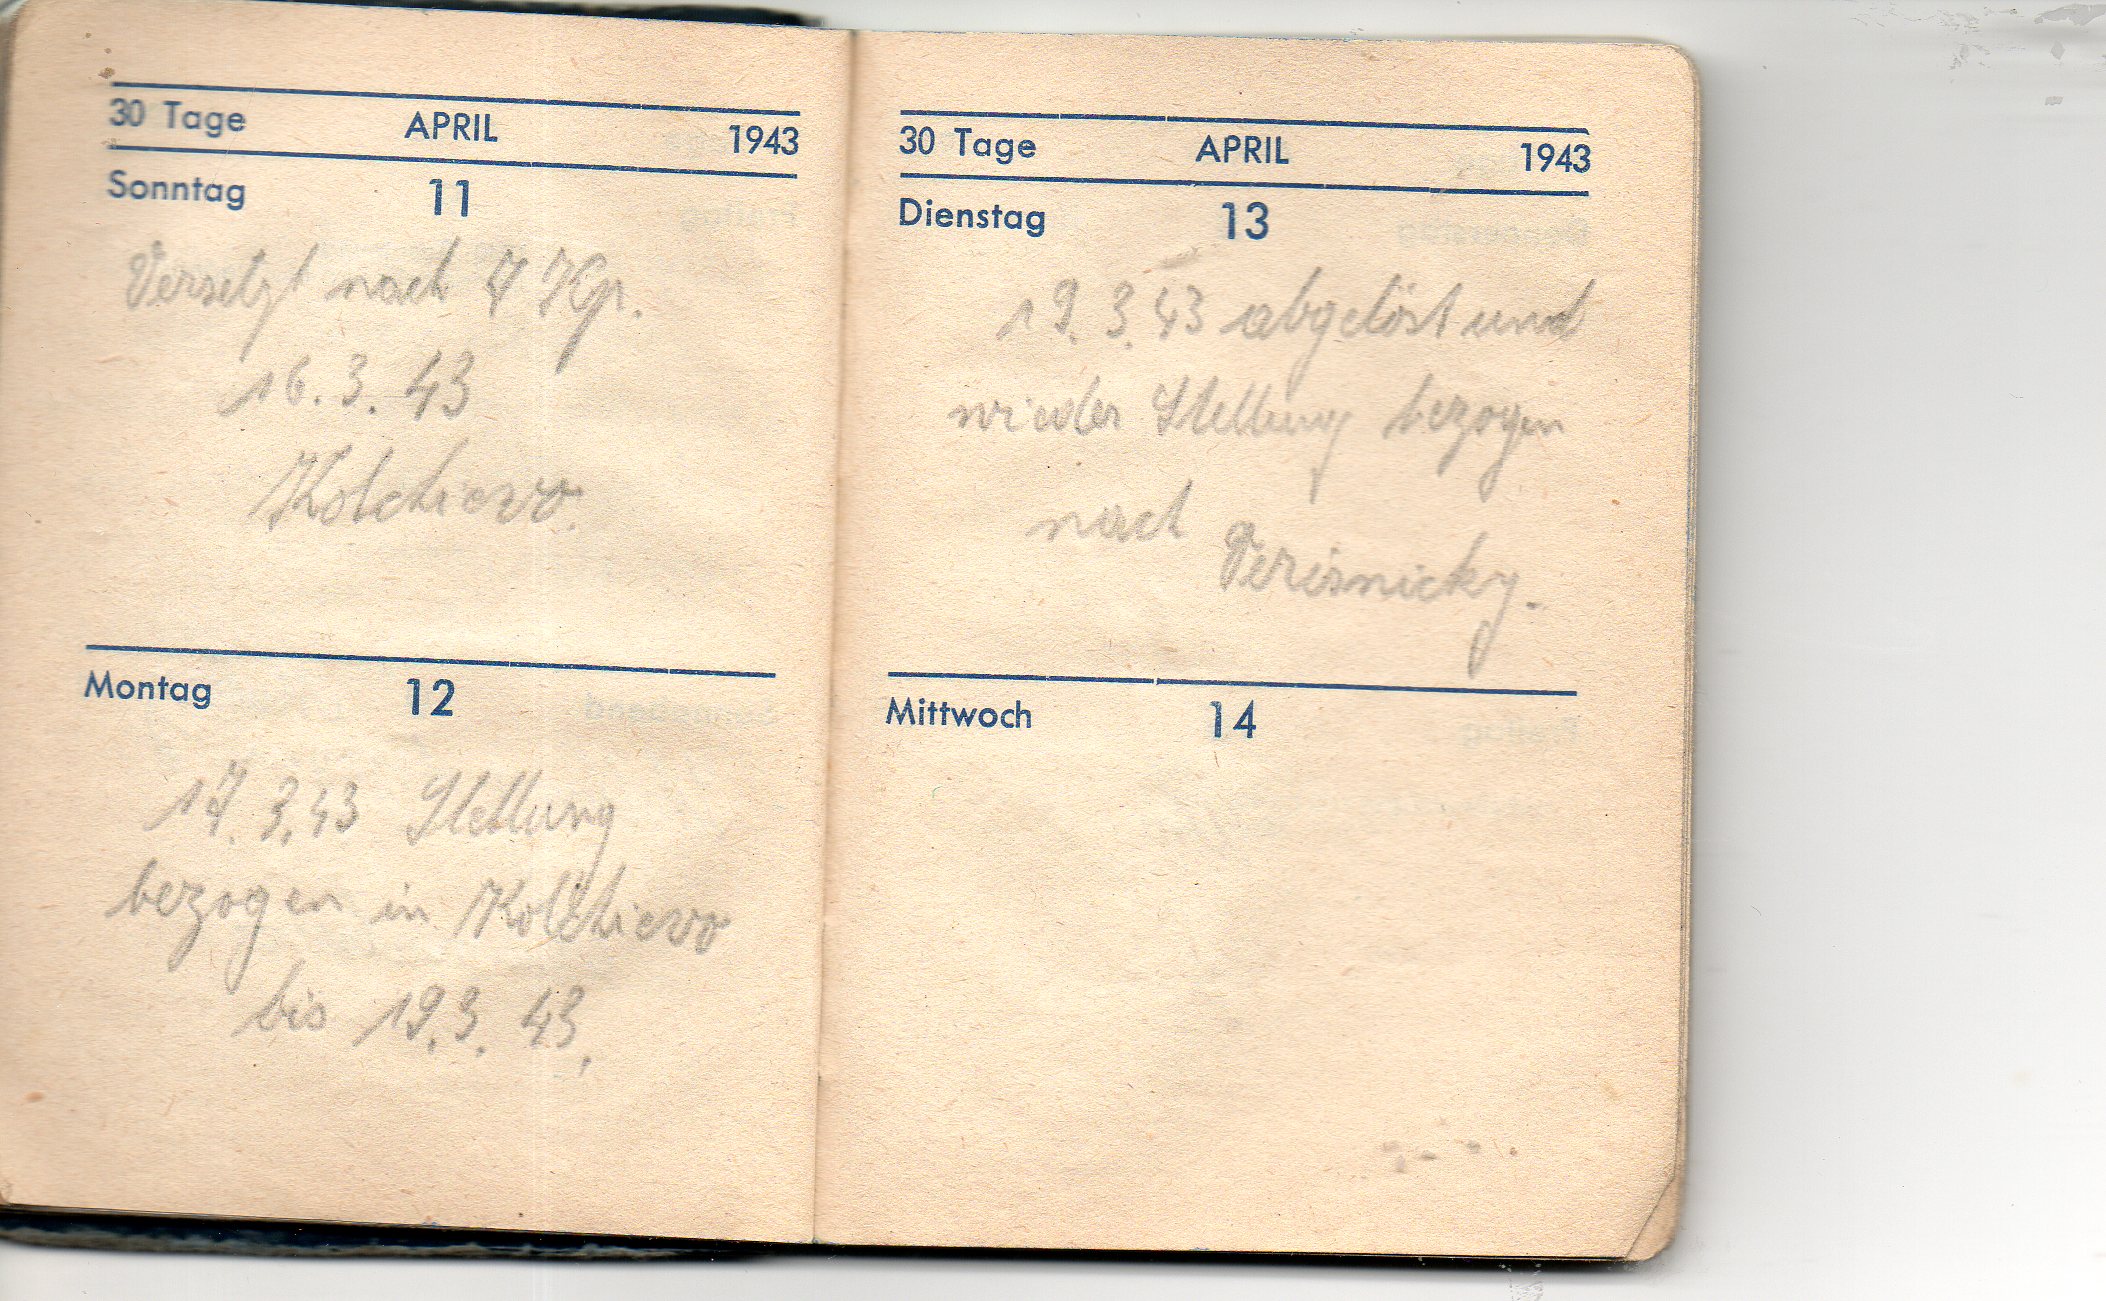 30 Tage APRIL 1943
Sonntag 11
Versetzt nach 7 Kp.
16.3.43
Kolchievo.
Montag 12
17.3.43 Stellung
bezogen in Kolchievo
bis 19.3.43.
30 Tage APRIL 1943
Dienstag 13
19.3.43 abgelöst und
wieder Stellung bezogen
nach
Mittwoch 14